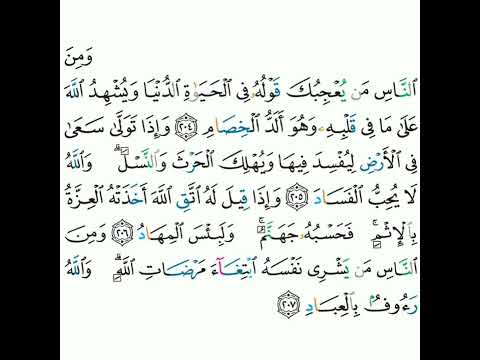 وَمِنَ
ٱلنَّاسِ مَن يُعْجِبُكَ قَوْلُهُۥ فِى ٱلْحَيَوٰةِ ٱلدُّنْيَا وَيُشْهِدُ ٱللَّهَ
عَلَىٰ مَا فِى قَلْبِهِۦ وَهُوَ أَلَدُّ ٱلْخِصَامِ ۝٢٠٤ وَإِذَا تَوَلَّىٰ سَعَىٰ
فِى ٱلْأَرْضِ لِيُفْسِدَ فِيهَا وَيُهْلِكَ ٱلْحَرْثَ وَٱلنَّسْلَ ۗ وَٱللَّهُ
لَا يُحِبُّ ٱلْفَسَادَ ۝٢٠٥ وَإِذَا قِيلَ لَهُ ٱتَّقِ ٱللَّهَ أَخَذَتْهُ ٱلْعِزَّةُ
بِٱلْإِثْمِ ۚ فَحَسْبُهُۥ جَهَنَّمُ ۚ وَلَبِئْسَ ٱلْمِهَادُ ۝٢٠٦ وَمِنَ
ٱلنَّاسِ مَن يَشْرِى نَفْسَهُ ٱبْتِغَآءَ مَرْضَاتِ ٱللَّهِ ۗ وَٱللَّهُ
رَءُوفٌۢ بِٱلْعِبَادِ ۝٢٠٧